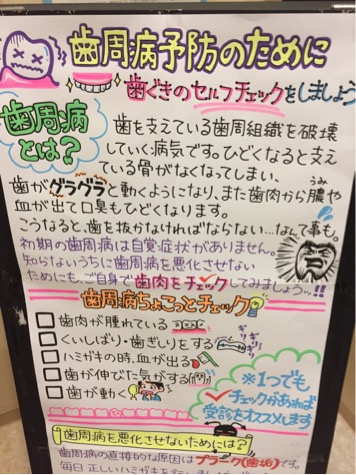 歯周病予防のために
歯ぐきのセルフチェックをしましょう
歯周病
とは?
歯を支えている歯周組織を破壊
していく病気です。ひどくなると支え
ている骨がなくなってしまい、
歯がグラグラと動くようになり、また歯肉から膿や
うみ
血が出て口臭もひどくなります。
こうなると、歯を抜かなければならない…なんて事も。
初期の歯周病は自覚症状がありません。
知らないうちに歯周病を悪化させない
ためにも、ご自身で歯肉をチェックしてみましょう…!!
歯周病ちょこっとチェック
歯肉が腫れている
くいしばり・歯ぎしりをする
ギリギリ
ハミガキの時、血が出る
歯が伸びた気がする
歯が動く
※1つでも
チェックがあれば
受診をオススメします
歯周病を悪化させないためには?
歯周病の直接的な原因はプラーク(歯垢)です。
毎日正しいハミガキを行い